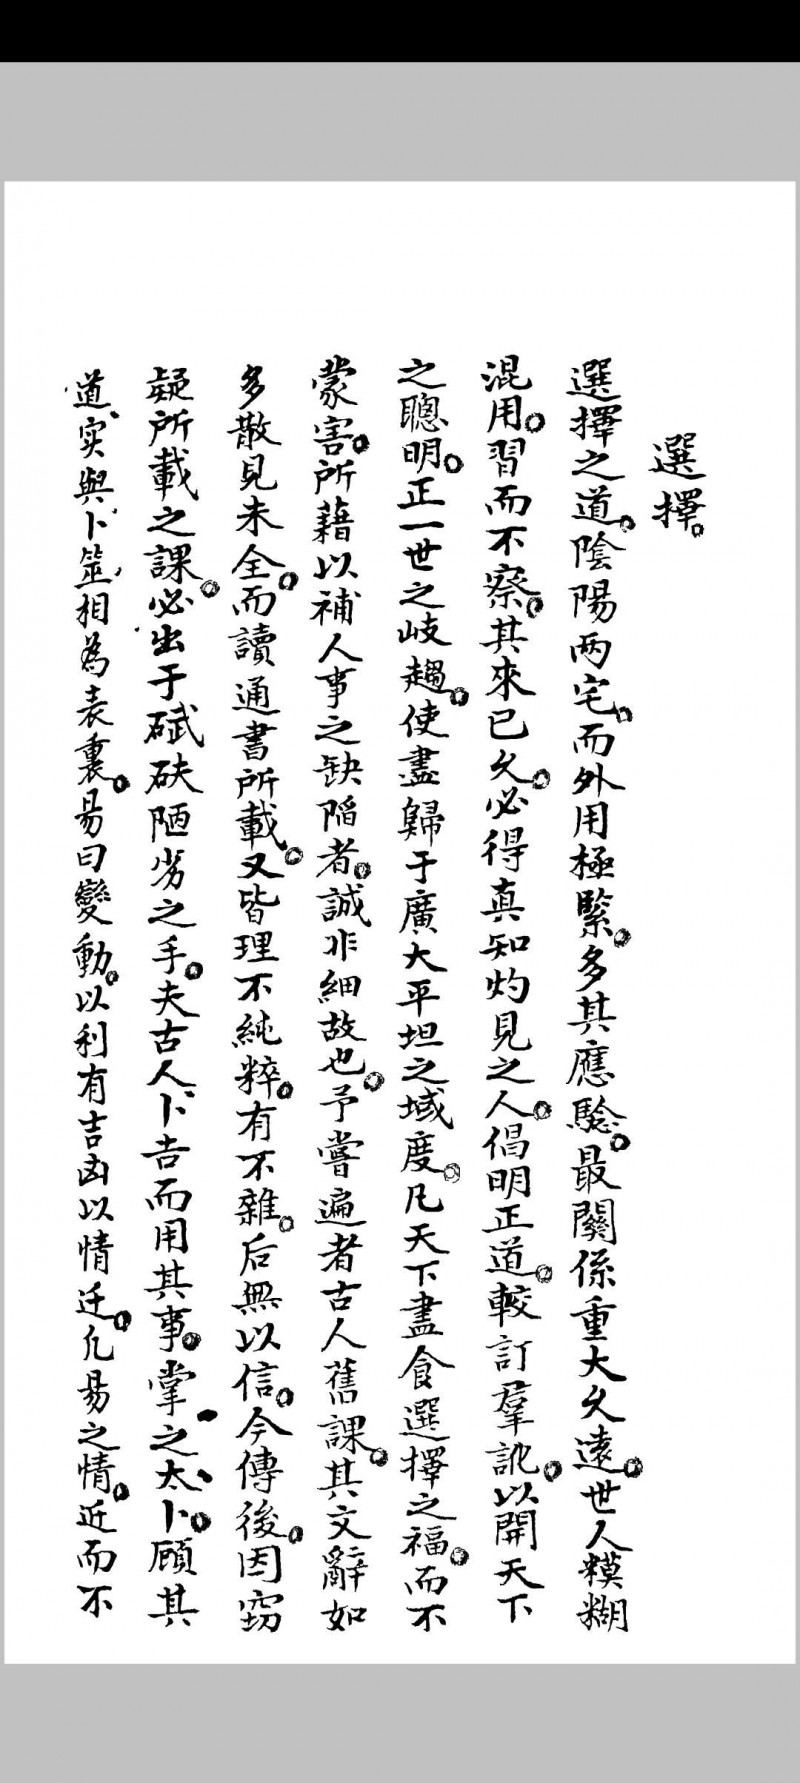 選擇。
選擇之道。陰陽两宅。而外用極緊。多其應驗。最關係重大久遠。世人糢糊
混用。習而不察。其來已久。必得真知灼見之人。倡明正道。較訂羣訛。以開天下
之聰明。正一世之岐趨。使盡歸于廣大平坦之域度。凡天下盡食選擇之福。而不
蒙害。所藉以補人事之缺陷者。誠非細故也。予嘗遍者古人舊課。其文辭如
多散見未全。而讀通書所載。又皆理不純粹。有不雜。后無以信。今傳後。因窃
疑所載之課。必出于碔砆陋劣之手。夫古人卜吉而用其事。掌之太卜。顧其
道实與卜筮相為表裏。易曰變動。以利有吉凶以情迁。凢易之情。近而不